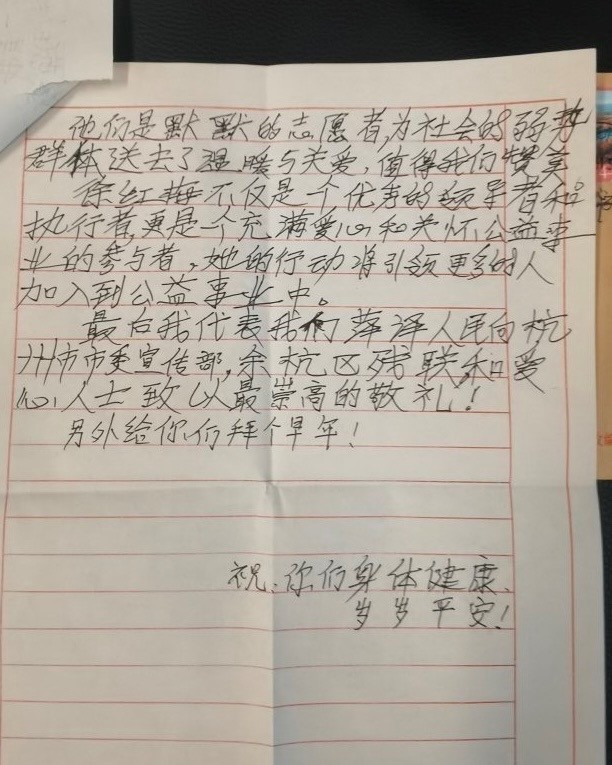 他们是默默的志愿者,为社会的弱势
群体送去了温暖与关爱,值得我们赞美
徐红梅不仅是个优秀的领导者和
执行者,更是一个充满爱心和关怀公益事
业的参与者,她的行动将引领更多的人
加入到公益事业中。
最后我代表我们萍泽人民向杭
州市市委宣传部,余杭区残联和爱
心人士致以最崇高的敬礼!
另外给你们拜个早年!
祝:你们身体健康、
岁岁平安!